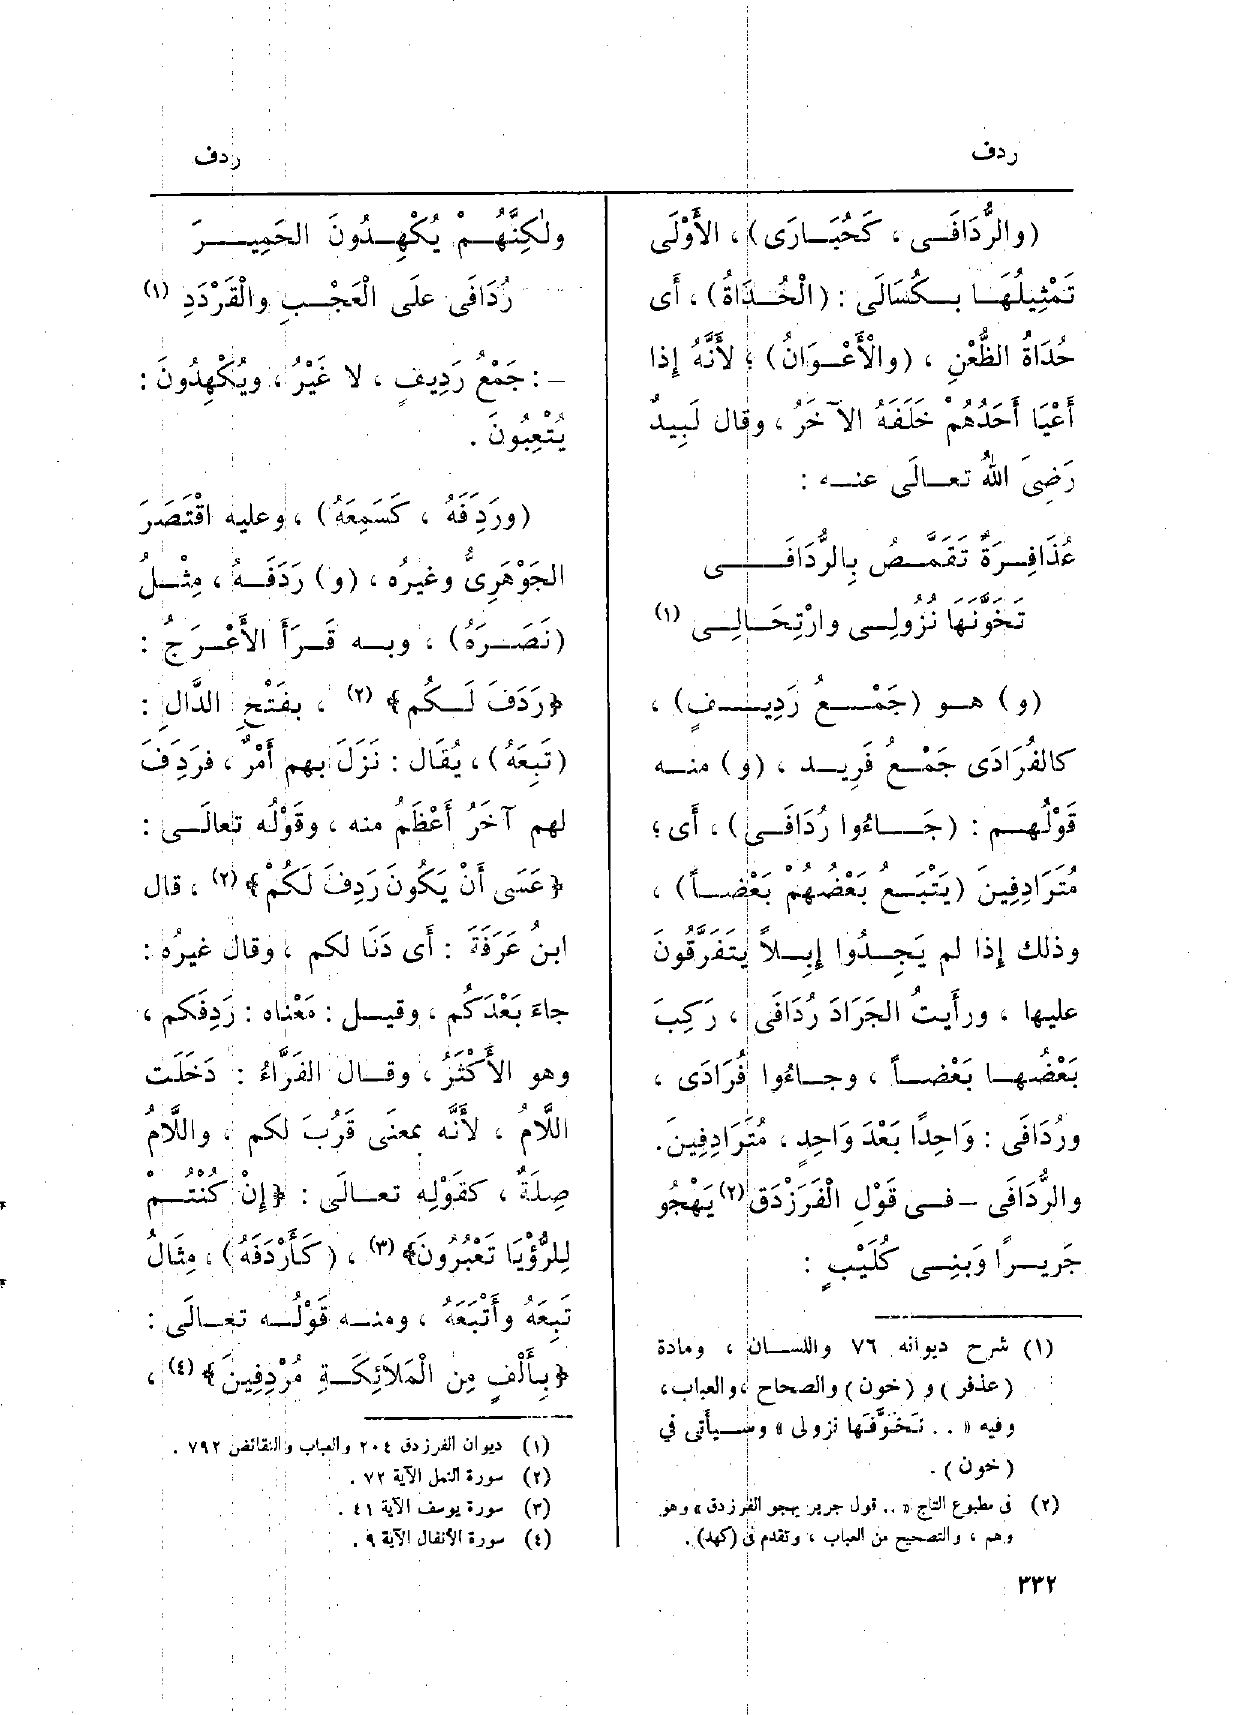 ردف
ردف
(والرُّدَافَى ، كَحُبَارَى) ، الأَوْلَى
تَمْثِيلُهَا بكُسَالَى : (الْحُدَاةُ) ، أَى
حُدَاةُ الظُّعْنِ ، (والْأَعْوَانُ) ؛ لأَنَّهُ إِذا
أَعْيَا أَحَدُهُمْ خَلَفَهُ الآخَرُ ، وقال لَبِيدٌ
رَضِىَ اللهُ تعالَى عنه :
عُذَافِرَةٌ تَقَمَّصُ بِالرُّدَافَى
تَخَوَّنَهَا نُزُولِى وارْتِحَالِى (١)
(و) هو (جَمْعُ رَدِيفٍ) ،
كالفُرَادَى جَمْعُ فَرِيد ، (و) منه
قَوْلُهم : (جَاءُوا رُدَافَى) ، أَى ؛
مُتَرَادِفِينَ (يَتْبَعُ بَعْضُهُمْ بَعْضاً) ،
وذلك إِذا لم يَجِدُوا إِبِلاً يَتَفَرَّقُونَ
عليها ، ورأَيتُ الجَرَادَ رُدَافَى ، رَكِبَ
بَعْضُها بَعْضاً ، وجاءُوا فُرَادَى ،
ورُدَافَى : وَاحِدًا بَعْدَ وَاحِدٍ ، مُتَرَادِفِينَ.
والرُّدَافَى - فى قَوْلِ الْفَرَزْدَقِ (٢) يَهْجُو
جَرِيرًا وَبَنِى كُلَيْبٍ :
(١) شرح ديوانه ٧٦ واللسان ، ومادة
(عذفر) و (خون) والصحاح ،والعباب،
وفيه « .. تَخَوَّفَها نزولى » وسيأتى فى
(خون) .
(٢) فى مطبوع التاج « .. قول جرير يهجو الفرزدق » وهو
وهم ، والتصحيح من العباب ، وتقدم فى (كهد) .
ولٰكِنَّهُمْ يُكْهِدُونَ الحَمِيرَ
رُدَافَى علَى الْعَجْبِ والْقَرْدَدِ (١)
- : جَمْعُ رَدِيفٍ ، لا غَيْرُ ، ويُكْهِدُونَ :
يُتْعِبُونَ .
(ورَدِفَهُ ، كَسَمِعَهُ) ، وعليه اقْتَصَرَ
الجَوْهَرِىُّ وغيرُه ، (و) رَدَفَهُ ، مِثْلُ
(نَصَرَهُ) ، وبه قَرَأَ الأَعْرَجُ :
﴿رَدَفَ لَكُم﴾ (٢) ، بفَتْحِ الدَّالِ :
(تَبِعَهُ) ، يُقَال : نَزَلَ بهم أَمْرٌ ، فرَدِفَ
لهم آخَرُ أَعْظَمُ منه ، وقَوْلُه تعالَى :
﴿عَسَى أَنْ يَكُونَ رَدِفَ لَكُمْ﴾ (٢) ، قال
ابنُ عَرَفَةَ : أَى دَنَا لكم ، وقال غيرُه :
جاءَ بَعْدَكُم ، وقيل : مَعْناه : رَدِفَكم ،
وهو الأَكْثَرُ ، وقال الفَرَّاءُ : دَخَلَت
اللَّامُ ، لأَنَّه بمعنَى قَرُبَ لكم ، واللَّامُ
صِلَةٌ ، كقَوْلِه تعالَى : ﴿إِنْ كُنْتُمْ
لِلرُّؤْيَا تَعْبُرُونَ﴾ (٣) ، (كَأَرْدَفَهُ) ، مِثَالُ
تَبِعَهُ وأَتْبَعَهُ ، ومنه قَوْلُه تعالَى :
﴿بِأَلْفٍ مِن الْمَلاَئِكَةِ مُرْدِفِينَ﴾ (٤) ،
(١) ديوان الفرزدق ٢٠٤ والعباب والنقائض ٧٩٢ .
(٢) سورة النمل الآية ٧٢ .
(٣) سورة يوسف الآية ٤٣ .
(٤) سورة الأنفال الآية ٩ .
٣٣٢